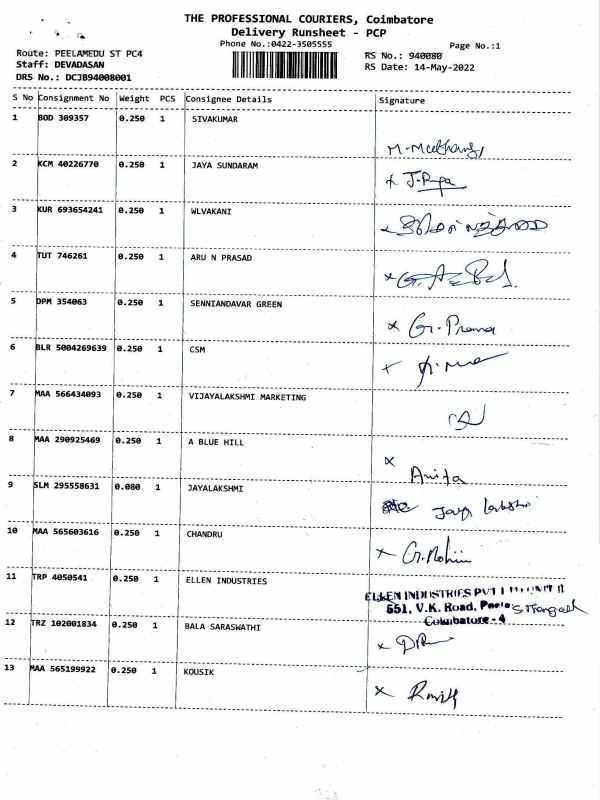 THE PROFESSIONAL COURIERS, Coimbatore
Delivery Runsheet - PCP
Phone No.:0422-3505555
Page No.:1
Route: PEELAMEDU ST PC4
Staff: DEVADASAN
DRS No.: DCJB94008001
RS No.: 940080
RS Date: 14-May-2022
S No Consignment No Weight PCS Consignee Details Signature
1 BOD 309357 0.250 1 SIVAKUMAR
2 KCM 40226770 0.250 1 JAYA SUNDARAM
3 KUR 693654241 0.250 1 WLVAKANI
4 TUT 746261 0.250 1 ARU N PRASAD
5 DPM 354063 0.250 1 SENNIANDAVAR GREEN
x Gr. Prema
6 BLR 5004269639 0.250 1 CSM
7 MAA 566434093 0.250 1 VIJAYALAKSHMI MARKETING
8 MAA 290925469 0.250 1 A BLUE HILL
x Anita
9 SLM 295558631 0.080 1 JAYALAKSHMI
10 MAA 565603616 0.250 1 CHANDRU
11 TRP 4050541 0.250 1 ELLEN INDUSTRIES
ELLEN INDUSTRIES PVT
551, V.K. Road,
Coimbatore - 4
12 TRZ 102001834 0.250 1 BALA SARASWATHI
13 MAA 565199922 0.250 1 KOUSIK